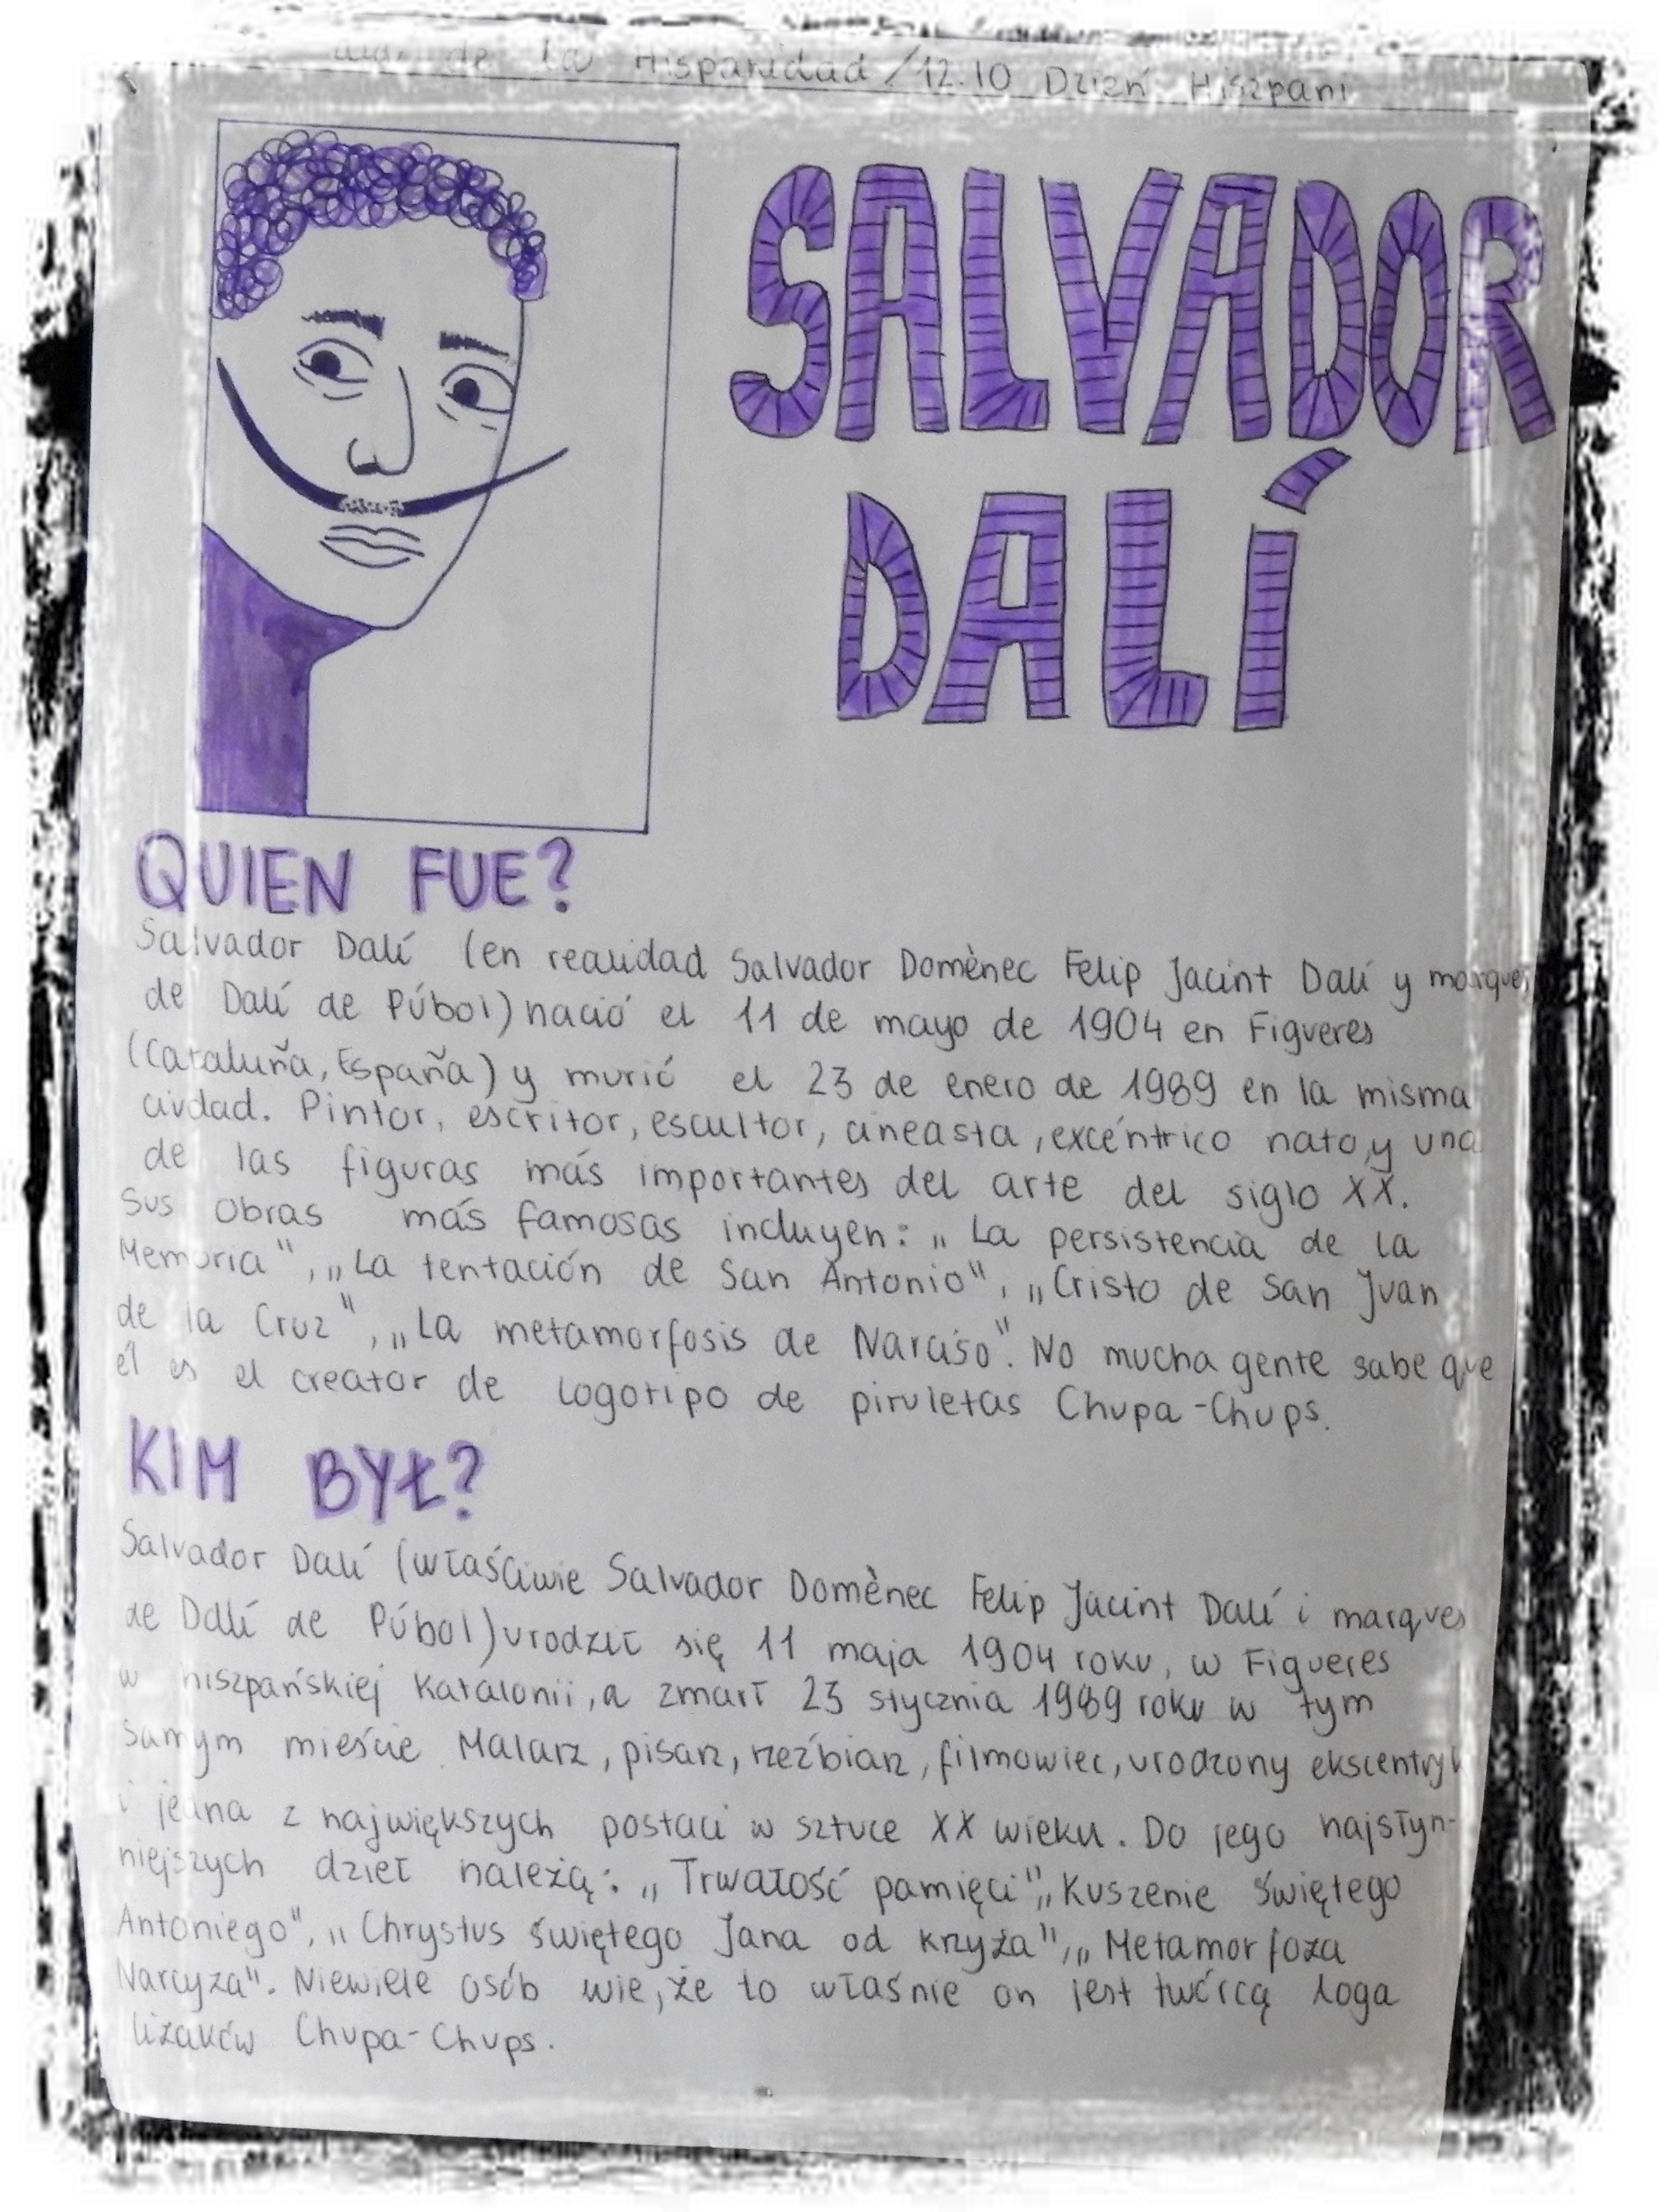 de la Hispanidad / 12.10 Dzień Hiszpanii
SALVADOR
DALÍ
QUIEN FUE?
Salvador Dalí (en realidad Salvador Domènec Felip Jacint Dalí y marques
de Dalí de Púbol) nació el 11 de mayo de 1904 en Figueres
(Cataluña, España) y murió el 23 de enero de 1989 en la misma
ciudad. Pintor, escritor, escultor, cineasta, excéntrico nato, y una
de las figuras más importantes del arte del siglo XX.
Sus obras más famosas incluyen: „La persistencia de la
Memoria", „La tentación de San Antonio", „Cristo de San Juan
de la Cruz", „La metamorfosis de Narciso". No mucha gente sabe que
él es el creator de logotipo de piruletas Chupa-Chups.
KIM BYŁ?
Salvador Dalí (właściwie Salvador Domènec Felip Jacint Dalí i marques
de Dalí de Púbol) urodził się 11 maja 1904 roku, w Figueres
w hiszpańskiej Katalonii, a zmarł 23 stycznia 1989 roku w tym
samym mieście. Malarz, pisarz, rzeźbiarz, filmowiec, urodzony ekscentryk
i jedna z największych postaci w sztuce XX wieku. Do jego najsłyn-
niejszych dzieł należą: „Trwałość pamięci", „Kuszenie świętego
Antoniego", „Chrystus świętego Jana od krzyża", „Metamorfoza
Narcyza". Niewiele osób wie, że to właśnie on jest twórcą loga
lizaków Chupa-Chups.